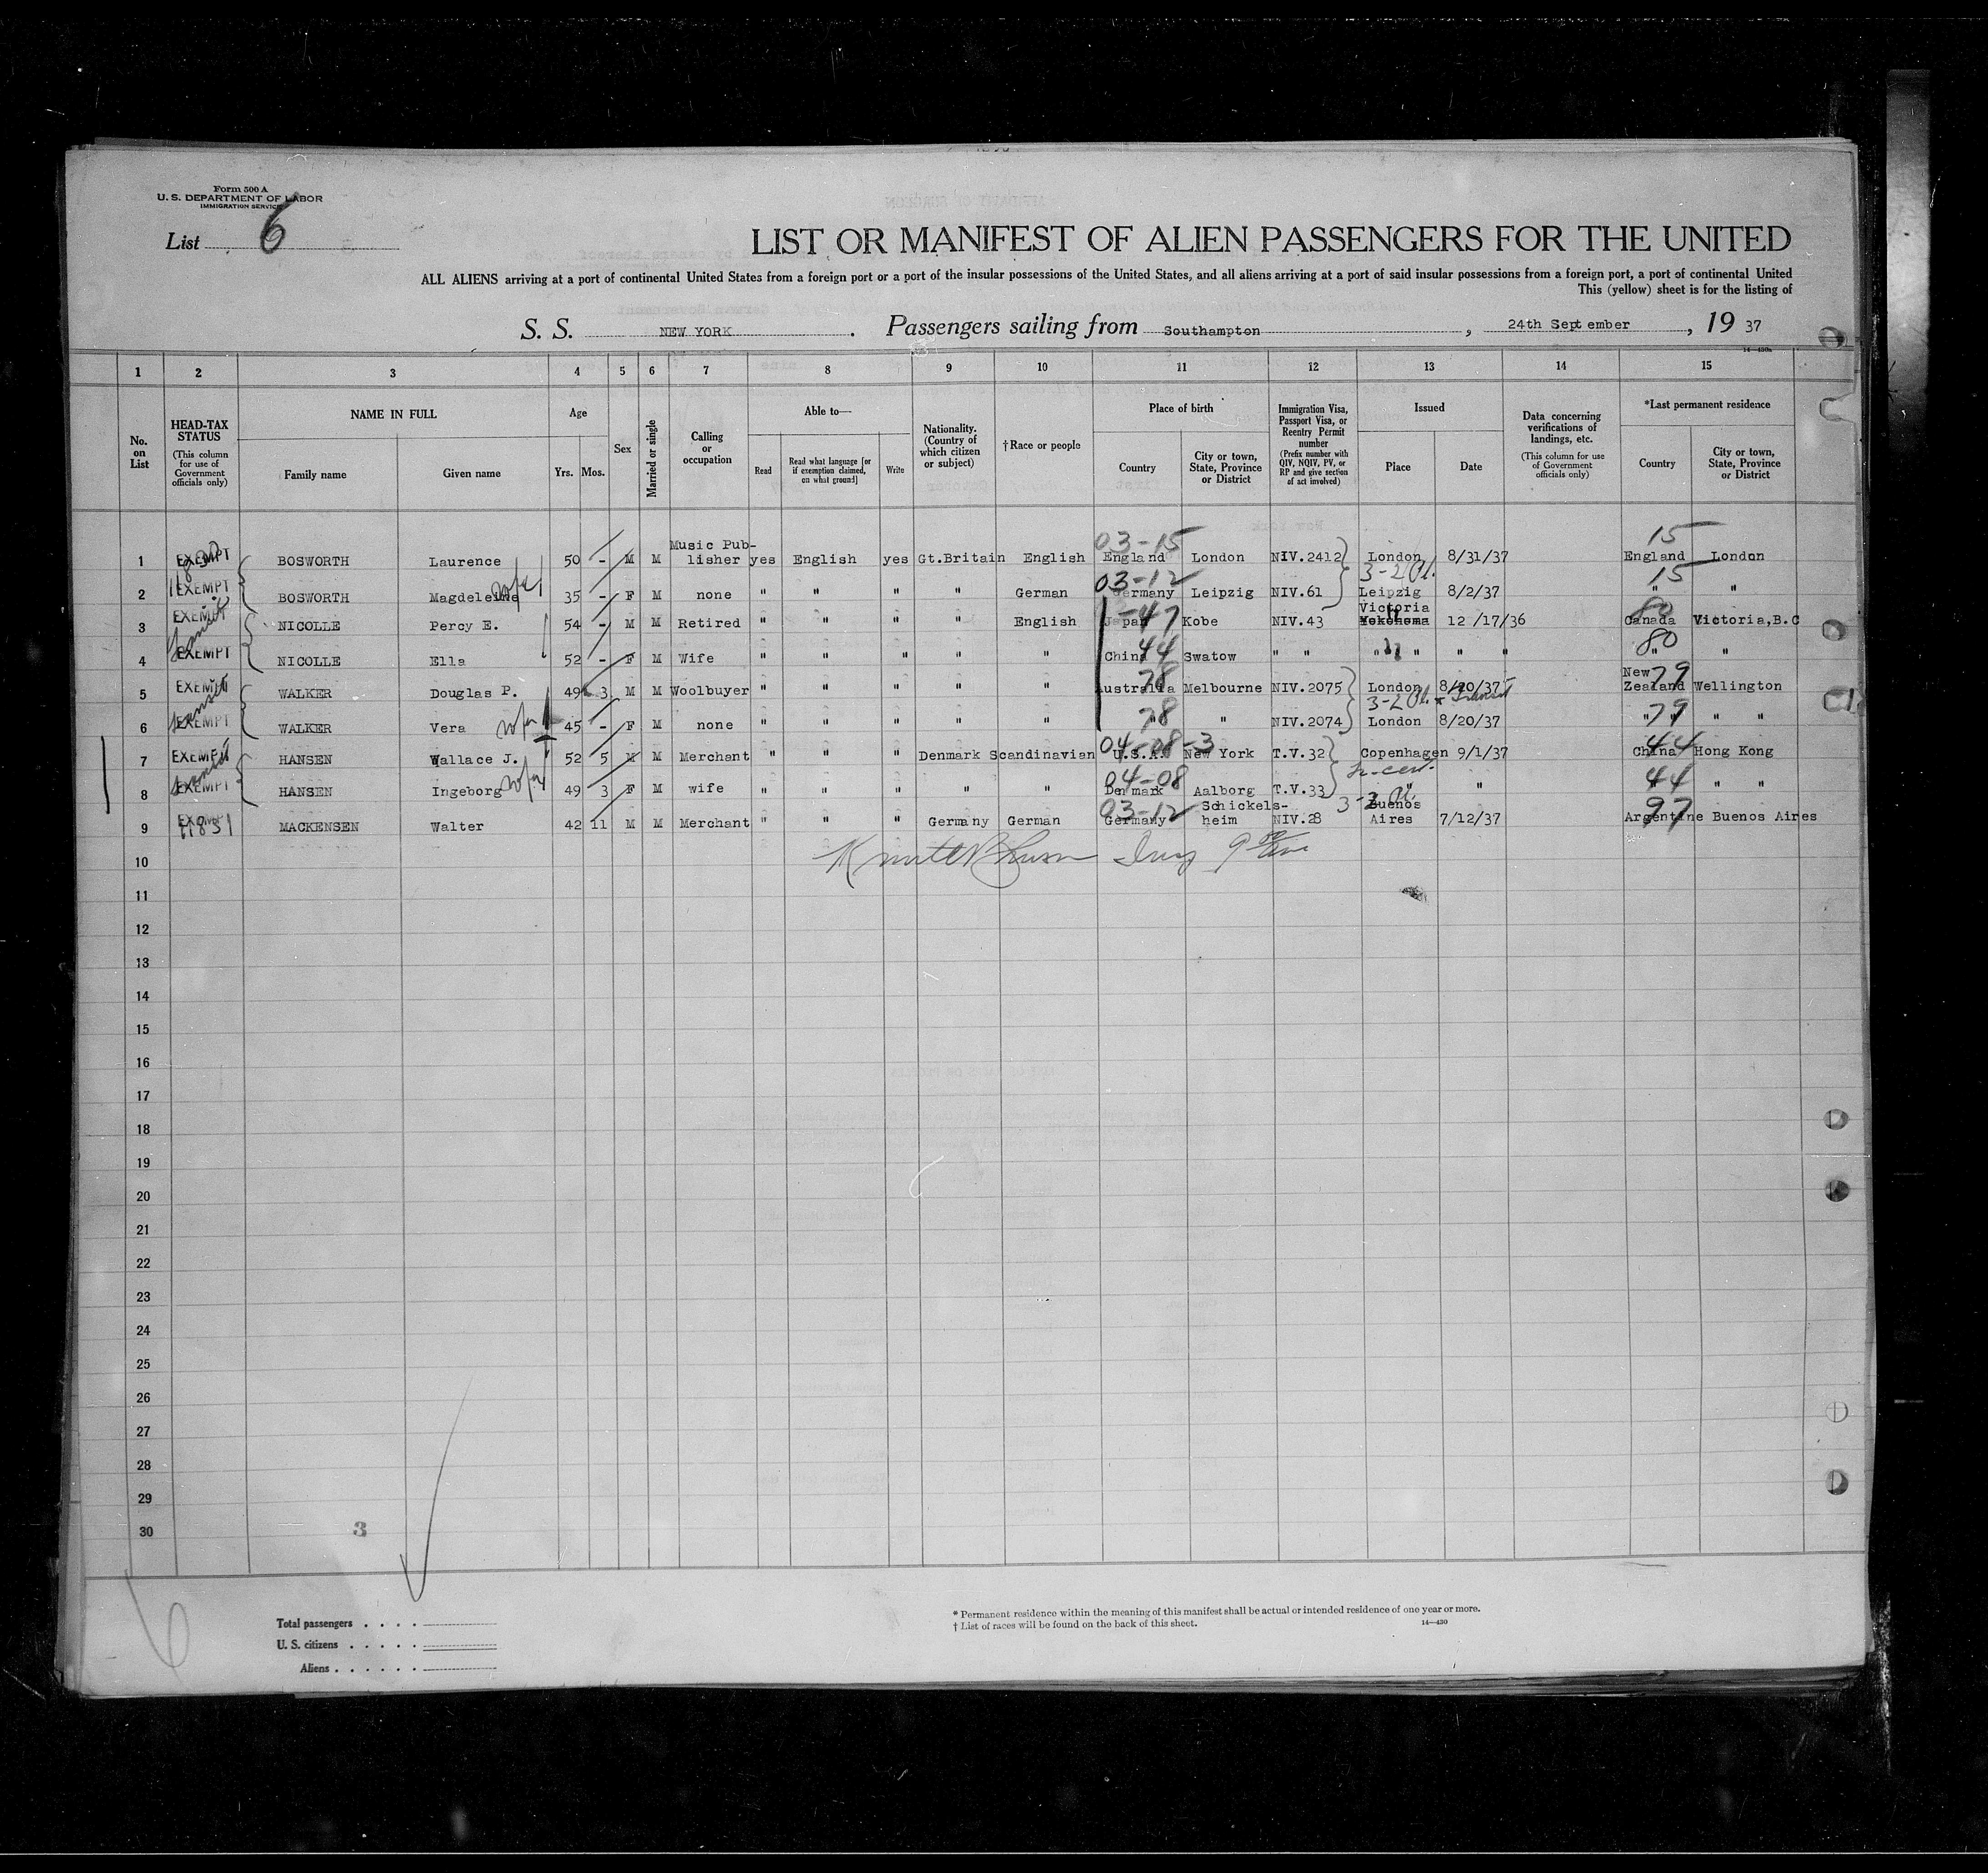 Form 500 A
U. S. DEPARTMENT OF LABOR
IMMIGRATION SERVICE
List 6
LIST OR MANIFEST OF ALIEN PASSENGERS FOR THE UNITED
ALL ALIENS arriving at a port of continental United States from a foreign port or a port of the insular possessions of the United States, and all aliens arriving at a port of said insular possessions from a foreign port, a port of continental United
This (yellow) sheet is for the listing of
S. S. NEW YORK. Passengers sailing from Southampton, 24th September, 19 37
1 2 3 4 5 6 7 8 9 10 11 12 13 14 15
No. on List
HEAD-TAX STATUS (This column for use of Government officials only)
NAME IN FULL Family name Given name
Age Yrs. Mos.
Sex
Married or single
Calling or occupation
Able to— Read Read what language [or if exemption claimed, on what ground] Write
Nationality. (Country of which citizen or subject)
†Race or people
Place of birth Country City or town, State, Province or District
Immigration Visa, Passport Visa, or Reentry Permit number (Prefix number with QIV, NQIV, PV, or RP and give section of act involved)
Issued Place Date
Data concerning verifications of landings, etc. (This column for use of Government officials only)
*Last permanent residence Country City or town, State, Province or District
1 EXEMPT BOSWORTH Laurence 50 - M M Music Publisher yes English yes Gt.Britain English 03-15 England London NIV.2412 London 8/31/37 15 England London
2 EXEMPT BOSWORTH Magdeleine wife 35 - F M none " " " " German 03-12 Germany Leipzig NIV.61 3-2 Leipzig 8/2/37 15 " "
3 EXEMPT NICOLLE Percy E. 54 - M M Retired " " " " English 47 Japan Kobe NIV.43 Victoria Yokohama 12 /17/36 80 Canada Victoria,B.C
4 EXEMPT NICOLLE Ella 52 - F M Wife " " " " " 44 China Swatow " " " " " " 80 " "
5 EXEMPT WALKER Douglas P. 49 3 M M Woolbuyer " " " " " 78 Australia Melbourne NIV.2075 London 8/20/37 79 New Zealand Wellington
6 EXEMPT WALKER Vera wife 45 - F M none " " " " " 78 " " NIV.2074 3-2 Transit London 8/20/37 79 " " " "
7 EXEMPT HANSEN Wallace J. 52 5 M M Merchant " " " Denmark Scandinavian 04-08-3 U.S.A. New York T.V.32 Copenhagen 9/1/37 44 China Hong Kong
8 EXEMPT HANSEN Ingeborg wife 49 3 F M wife " " " " " 04-08 Denmark Aalborg T.V.33 " " 44 " "
9 EXEMPT 11831 MACKENSEN Walter 42 11 M M Merchant " " " Germany German 03-12 Germany Schickels-heim NIV.28 3-2 Buenos Aires 7/12/37 97 Argentine Buenos Aires
10
11
12
13
14
15
16
17
18
19
20
21
22
23
24
25
26
27
28
29
30
3
6
Total passengers . . . .
U. S. citizens . . . . .
Aliens . . . . . .
* Permanent residence within the meaning of this manifest shall be actual or intended residence of one year or more.
† List of races will be found on the back of this sheet.
14—430